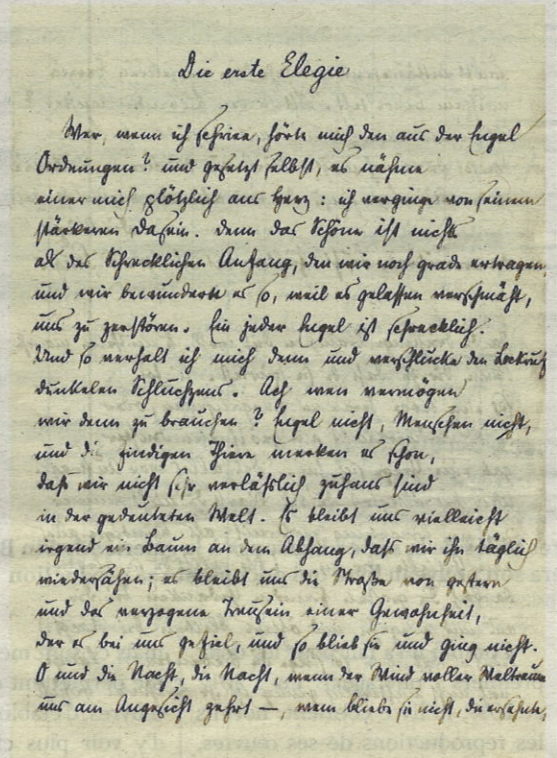 Die erste Elegie
Wer, wenn ich schriee, hörte mich denn aus der Engel
Ordnungen? und gesetzt selbst, es nähme
einer mich plötzlich ans Herz: ich verginge von seinem
stärkeren Dasein. denn das Schöne ist nichts
als des Schrecklichen Anfang, den wir noch grade ertragen,
und wir bewundern es so, weil es gelassen verschmäht,
uns zu zerstören. Ein jeder Engel ist schrecklich.
Und so verhalt ich mich denn und verschlucke den Lockruf
dunkelen Schluchzens. Ach wen vermögen
wir denn zu brauchen? Engel nicht, Menschen nicht,
und die findigen Thiere merken es schon,
daß wir nicht sehr verläßlich zuhaus sind
in der gedeuteten Welt. Es bleibt uns vielleicht
irgend ein Baum an dem Abhang, daß wir ihn täglich
wiedersähen; es bleibt uns die Straße von gestern
und das verzogene Treusein einer Gewohnheit,
der es bei uns gefiel, und so blieb sie und ging nicht.
O und die Nacht, die Nacht, wenn der Wind voller Weltraum
uns am Angesicht zehrt —, wem bliebe sie nicht, die ersehnte,